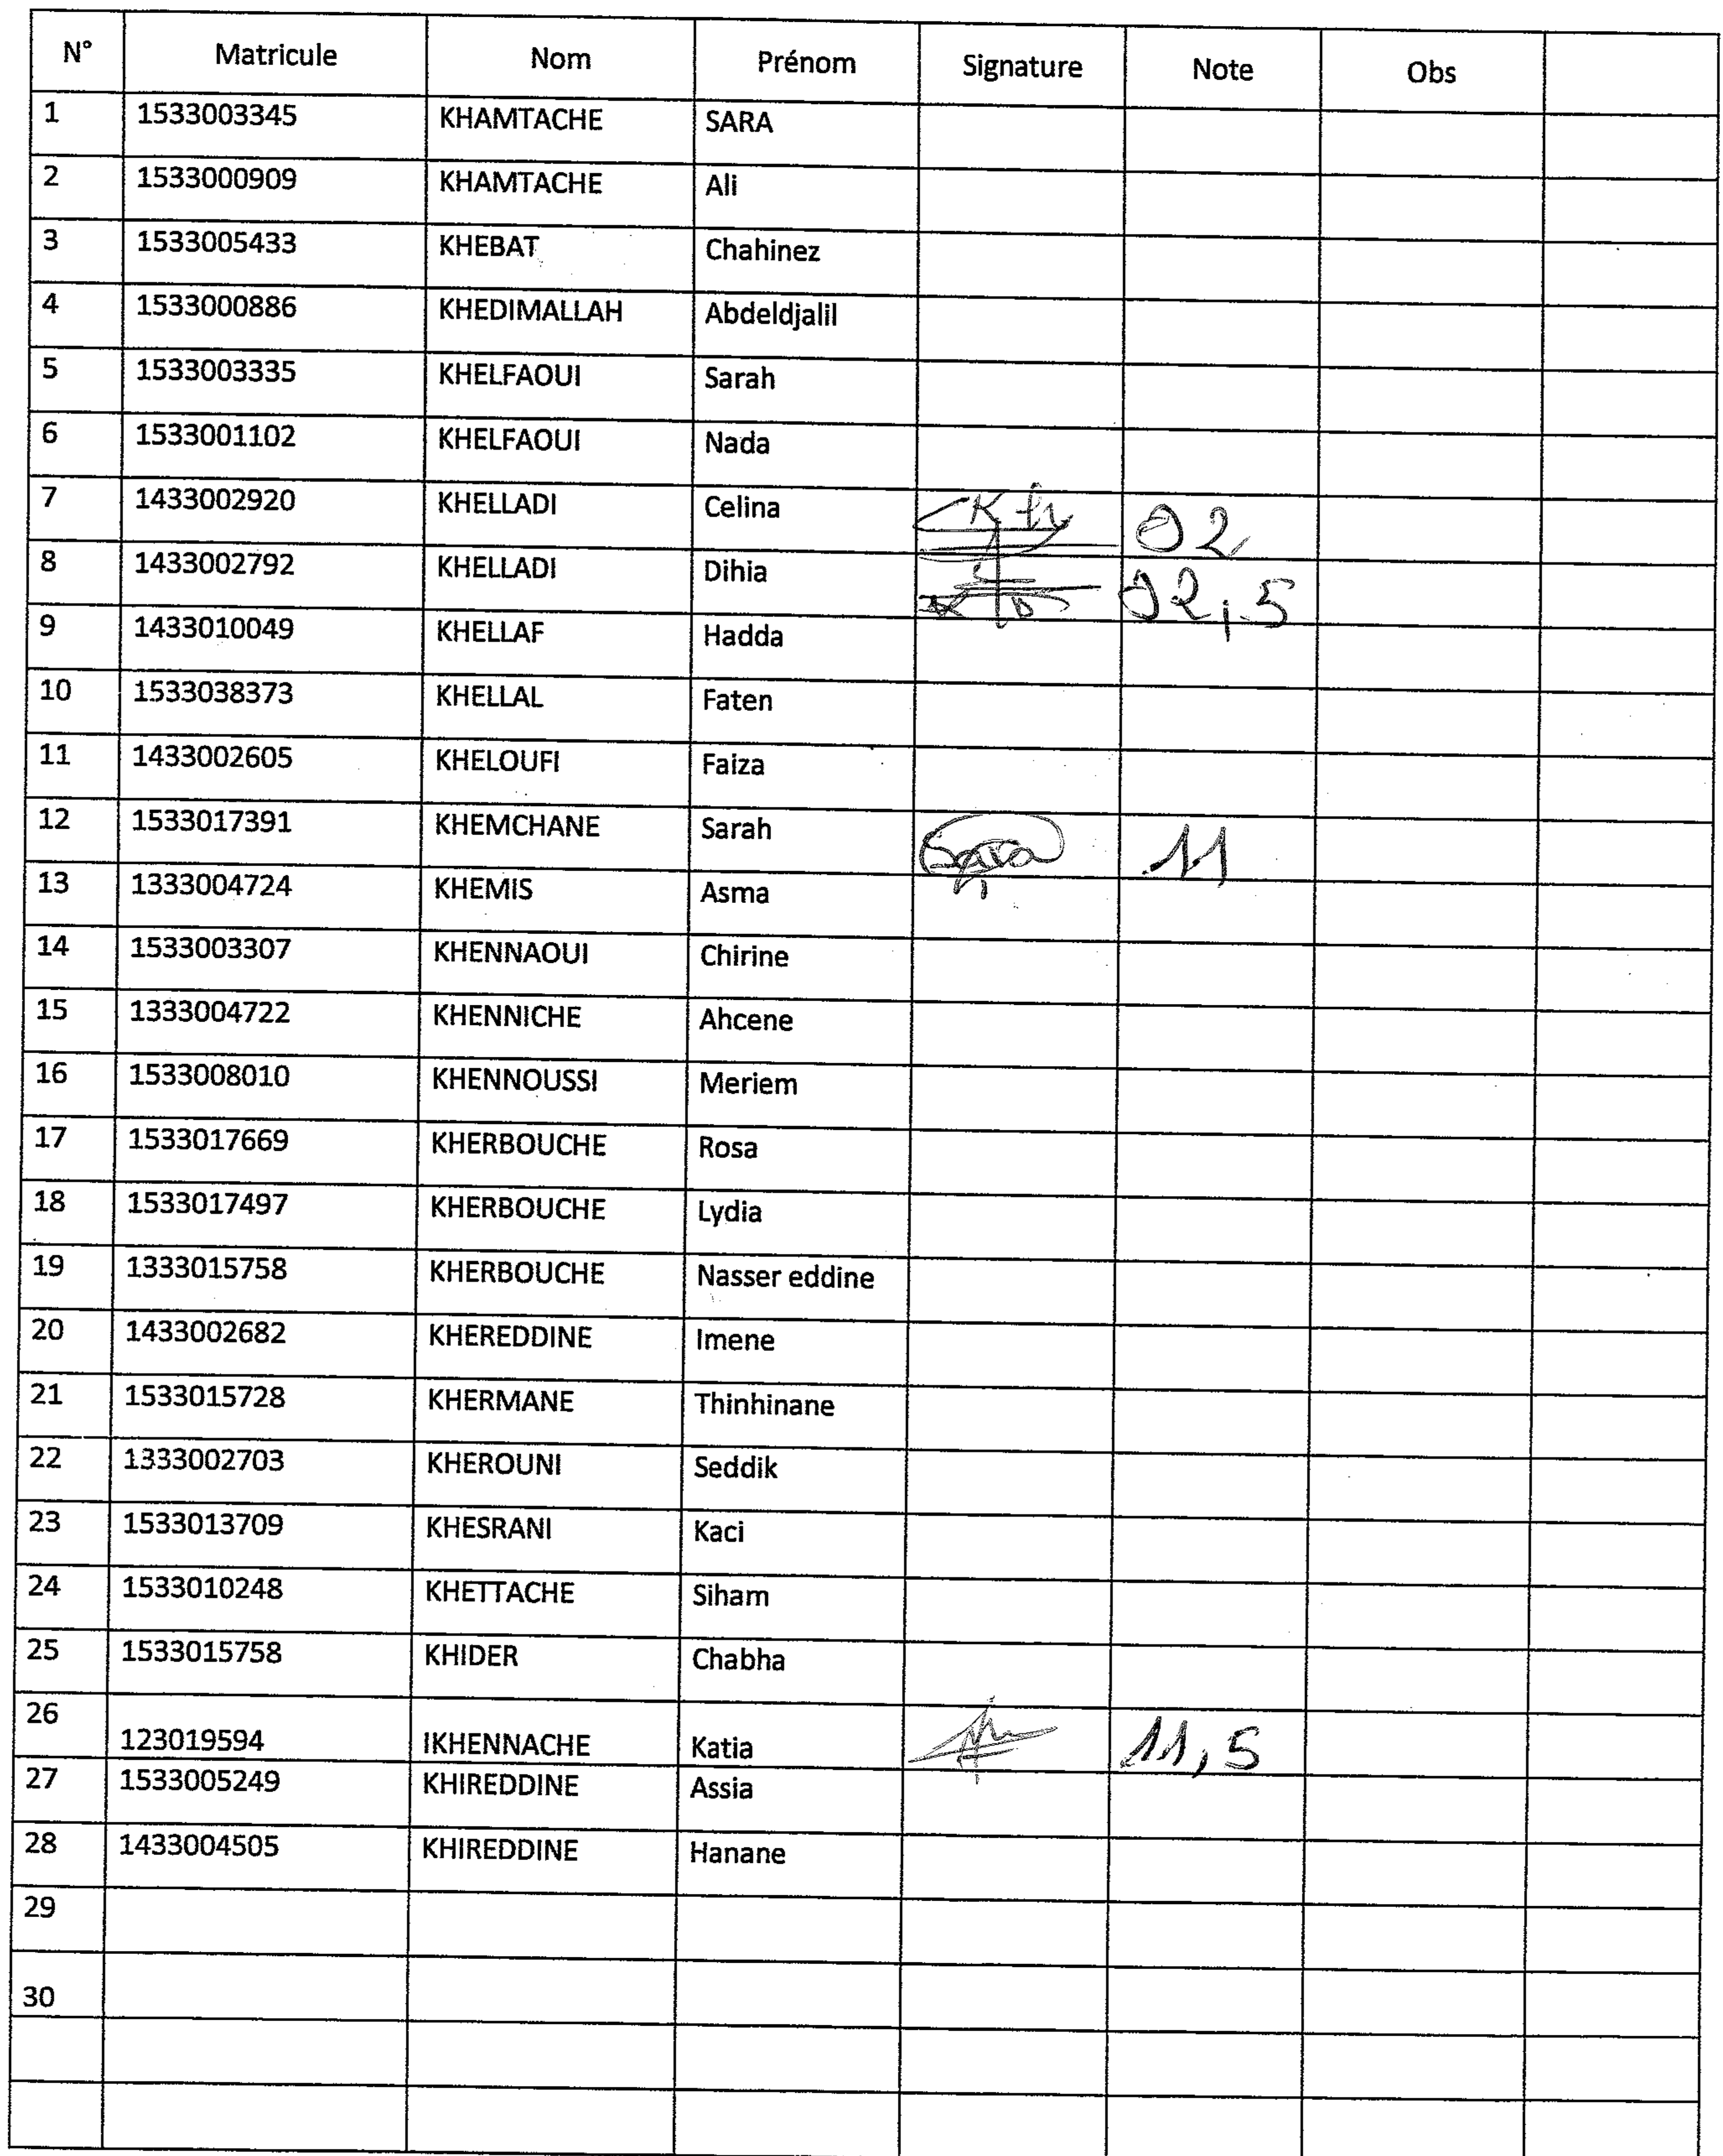 N° Matricule Nom Prénom Signature Note Obs
1 1533003345 KHAMTACHE SARA
2 1533000909 KHAMTACHE Ali
3 1533005433 KHEBAT Chahinez
4 1533000886 KHEDIMALLAH Abdeldjalil
5 1533003335 KHELFAOUI Sarah
6 1533001102 KHELFAOUI Nada
7 1433002920 KHELLADI Celina 02
8 1433002792 KHELLADI Dihia 02,5
9 1433010049 KHELLAF Hadda
10 1533038373 KHELLAL Faten
11 1433002605 KHELOUFI Faiza
12 1533017391 KHEMCHANE Sarah 11
13 1333004724 KHEMIS Asma
14 1533003307 KHENNAOUI Chirine
15 1333004722 KHENNICHE Ahcene
16 1533008010 KHENNOUSSI Meriem
17 1533017669 KHERBOUCHE Rosa
18 1533017497 KHERBOUCHE Lydia
19 1333015758 KHERBOUCHE Nasser eddine
20 1433002682 KHEREDDINE Imene
21 1533015728 KHERMANE Thinhinane
22 1333002703 KHEROUNI Seddik
23 1533013709 KHESRANI Kaci
24 1533010248 KHETTACHE Siham
25 1533015758 KHIDER Chabha
26 123019594 IKHENNACHE Katia 11,5
27 1533005249 KHIREDDINE Assia
28 1433004505 KHIREDDINE Hanane
29
30